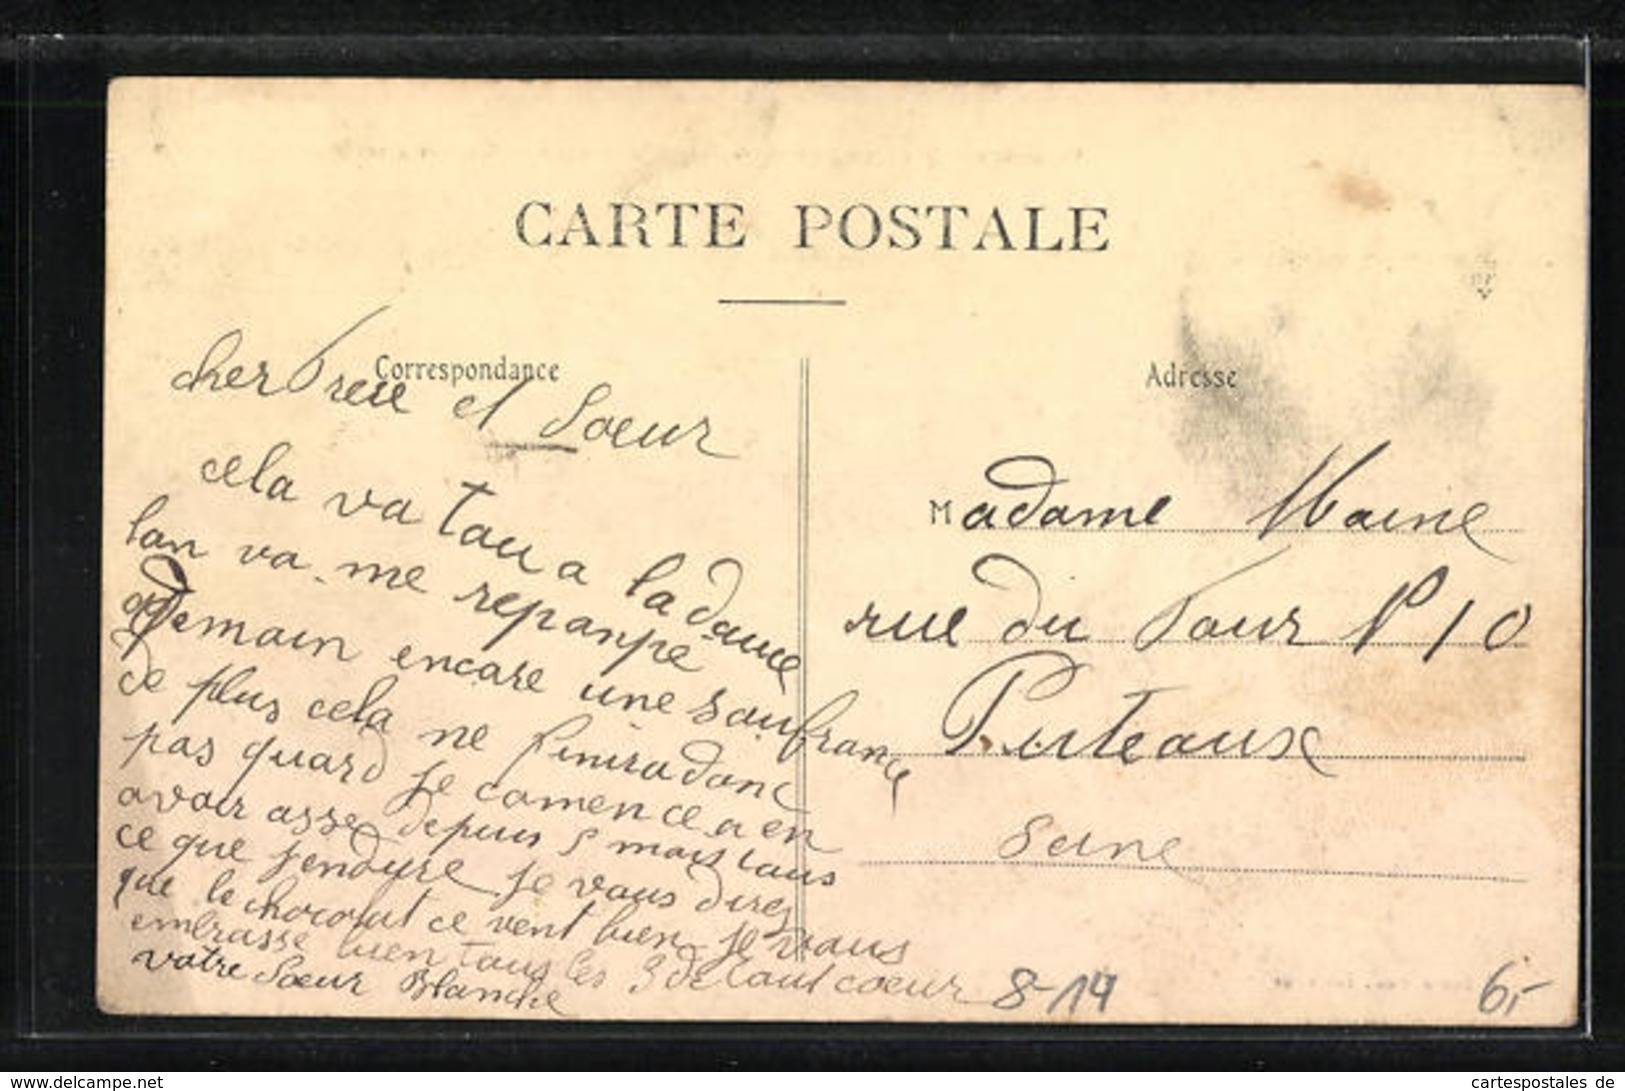 CARTE POSTALE
Correspondance
cher Frere et Soeur
cela va tou a la douce
lon va me repanpé
Demain encore une soufrance
de plus cela ne finira donc
pas quard je comence a en
avoir asse depuis 5 mois tous
ce que j'endure je vous direz
que le chocolat ce vent bien je vous
embrasse bien tous les 3 de tout coeur
votre Soeur Blanche
Adresse
Madame
rue du Four N° 10
Puteaux
Seine
8-14
6,-
www.cartespostales.de
cartespostales de